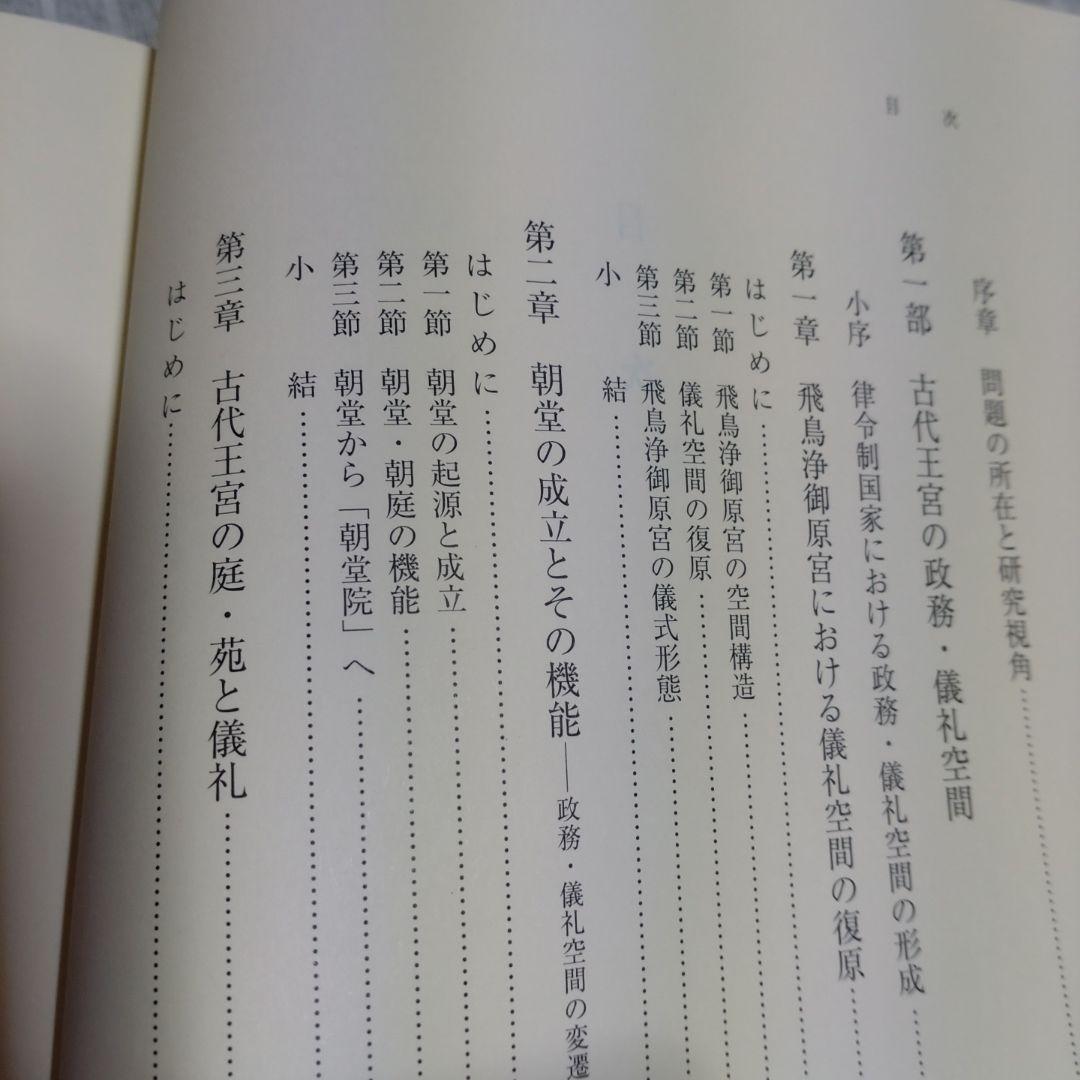 目次
序章 問題の所在と研究視角
第一部 古代王宮の政務・儀礼空間
小序 律令制国家における政務・儀礼空間の形成
第一章 飛鳥浄御原宮における儀礼空間の復原
はじめに
第一節 飛鳥浄御原宮の空間構造
第二節 儀礼空間の復原
第三節 飛鳥浄御原宮の儀式形態
小結
第二章 朝堂の成立とその機能――政務・儀礼空間の変遷
はじめに
第一節 朝堂の起源と成立
第二節 朝堂・朝庭の機能
第三節 朝堂から「朝堂院」へ
小結
第三章 古代王宮の庭・苑と儀礼
はじめに